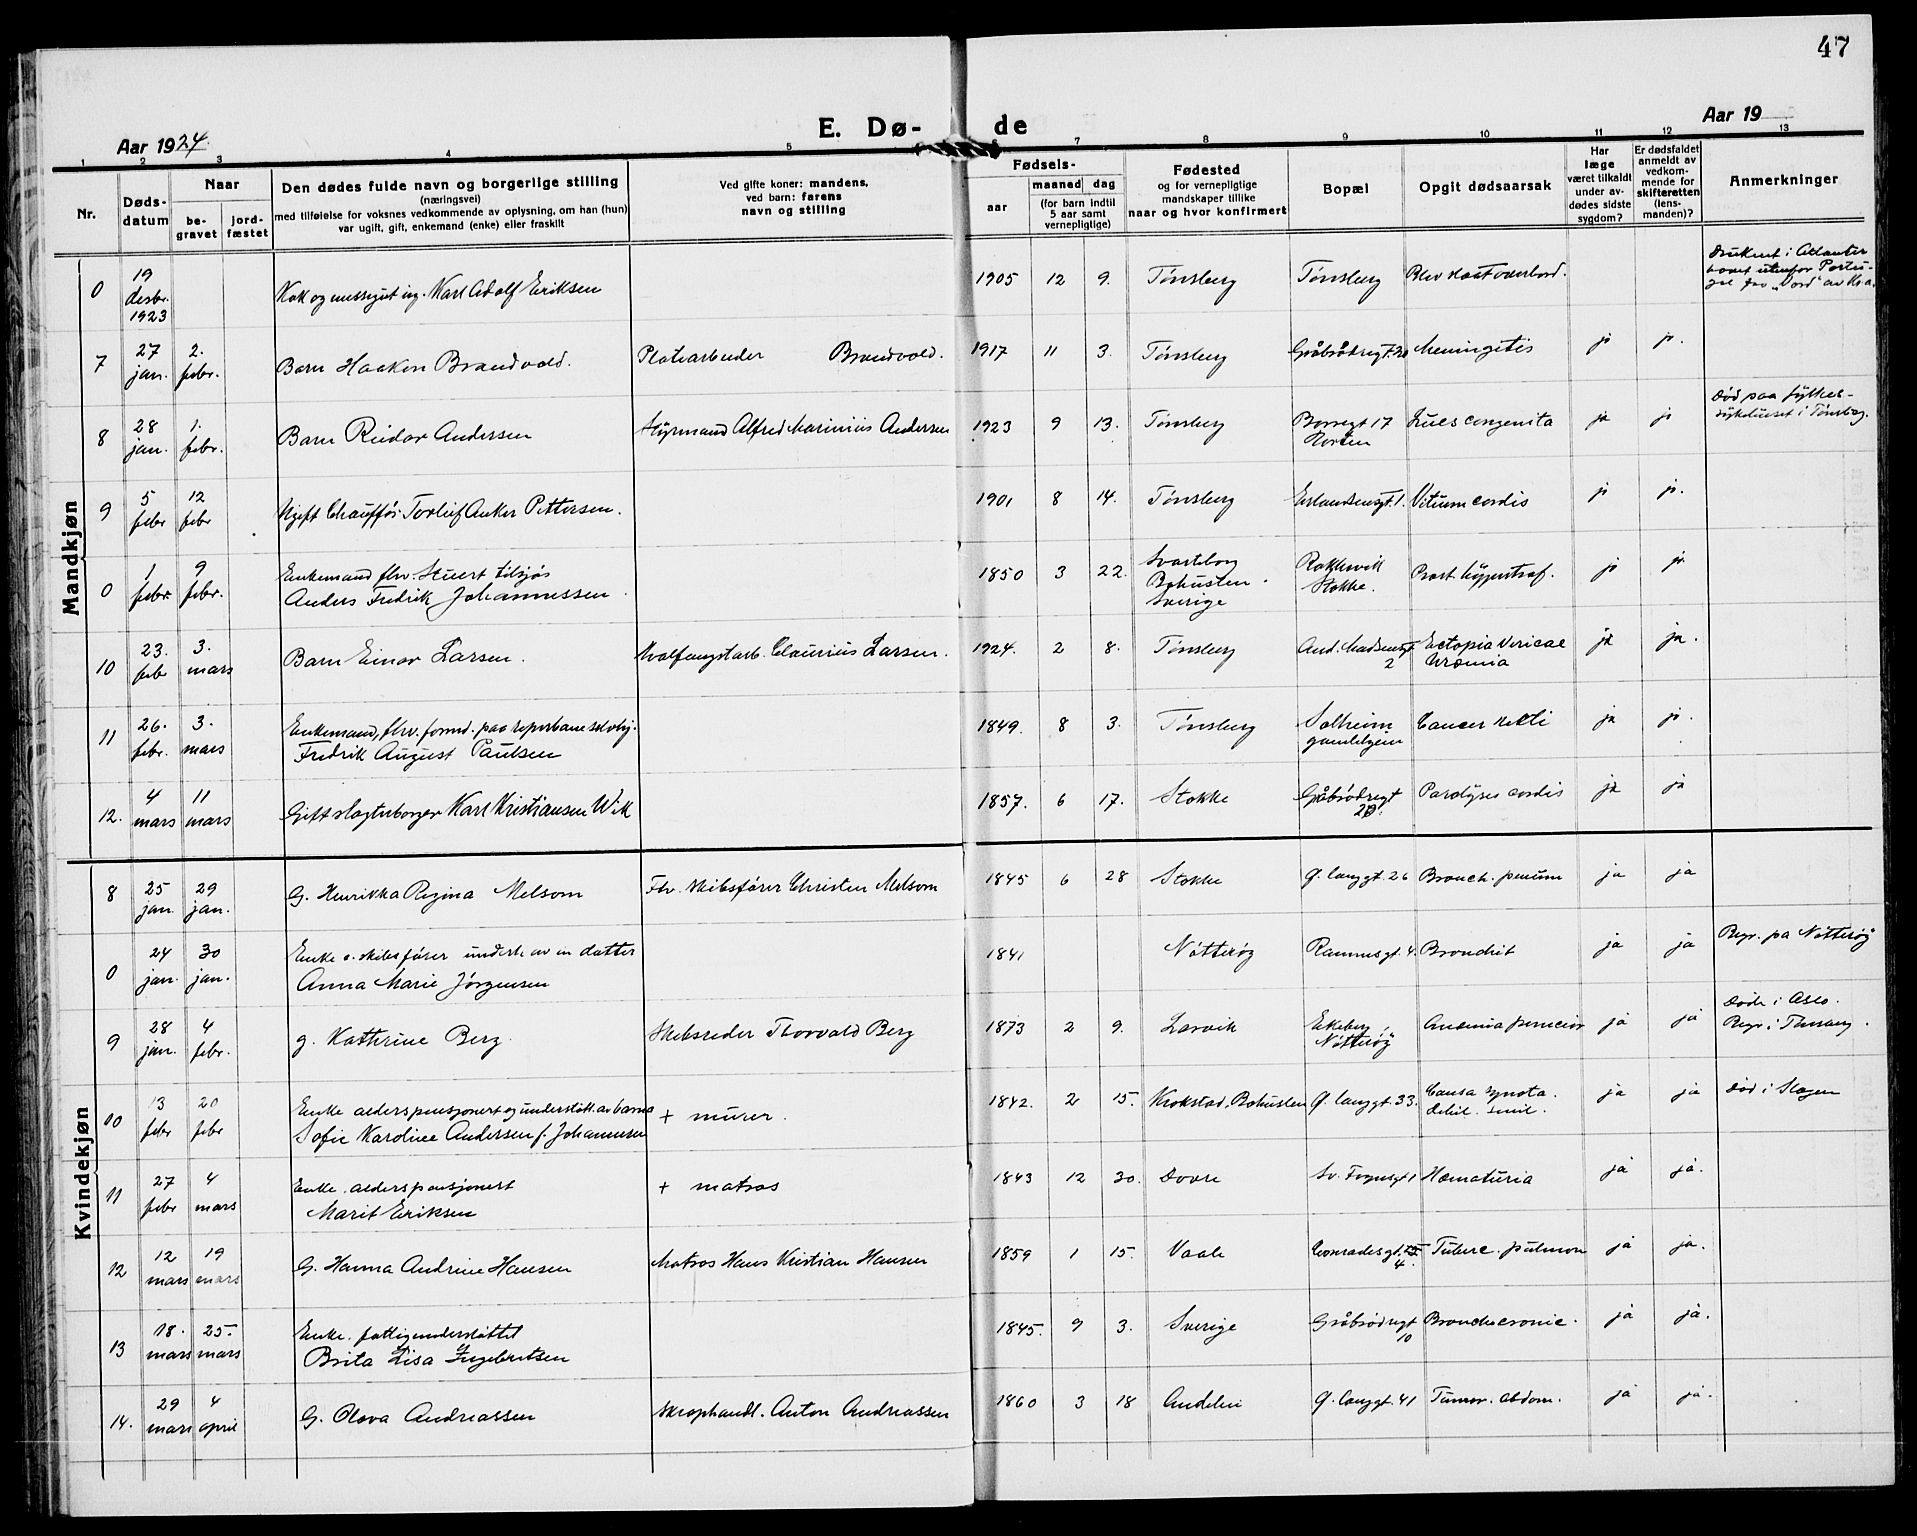 47
Aar 1924.
E. Dø-
de
Aar 19
1 2 3 4 5 7 8 9 10 11 12 13
Nr.
Døds-
datum
Naar
be-
gravet
jord-
fæstet
Den dødes fulde navn og borgerlige stilling
(næringsvei)
med tilføielse for voksnes vedkommende av oplysning, om han (hun)
var ugift, gift, enkemand (enke) eller fraskilt
Ved gifte koner: mandens,
ved barn: farens
navn og stilling
Fødsels-
aar
maaned
dag
(for barn indtil
5 aar samt
vernepligtige)
Fødested
og for vernepligtige
mandskaper tillike
naar og hvor konfirmert
Bopæl
Opgit dødsaarsak
Har
læge
været tilkaldt
under av-
dødes sidste
sygdom?
Er dødsfaldet
anmeldt av
vedkom-
mende for
skifteretten
(lens-
manden)?
Anmerkninger
Mandkjøn
0 19 desbr. 1923 Kok og messegut ug. Karl Adolf Eriksen 1905 12 9. Tønsberg Tønsberg Blev slaat overbord. Druknet i Atlanter
havet utenfor Portu-
gal fra "Nord" av Kr.a.
7 27 jan. 2. febr. Barn Haakon Brandvold. Platearbeider Brandvold. 1917 11 3. Tønsberg Gråbrødregt. 20 Meningitis ja ja.
8 28 jan. 1. febr. Barn Reidar Andersen Styrmand Alfred Marinius Andersen 1923 9 13. Tønsberg Borregt 17
Horten Lues congenita ja ja Død paa fylkes-
sykehuset i Tønsbg.
9 5 febr 12 febr Ugift Chauffør Torleif Anker Pettersen. 1901 8 14. Tønsberg Erlandsensgt. 1. Vitium cordis ja ja.
0 1 febr. 9 febr. Enkemand fhv. Stuert tilsjøs
Anders Fredrik Johannessen 1850 3 22. Svarteborg
Bohuslen
Sverige Rakkevik
Stokke. Prost. hypertrof. ja ja
10 23. febr 3. mars Barn Einar Larsen. Hvalfangstarb. Claurius Larsen. 1924. 2 8. Tønsberg And. Madsensgt
2 Ectopia Vericae
Uræmia ja ja.
11 26. febr. 3. mars Enkemand, fhv. formd. paa reperbane selveig.
Fredrik August Paulsen 1849. 8 3. Tønsberg Solheim
gamlehjem Cancer rekti ja ja.
12. 4 mars 11 mars Gift slagterborger Karl Kristiansen Wik 1857. 6 17. Stokke Gråbrødregt
20. Paralyses cordis ja ja
Kvindekjøn
8 25 jan. 29 jan. G. Henrikka Regina Melsom Fhv. skibsfører Christen Melsom 1845 6 28 Stokke Ø. langgt. 26 Bronch. pneum ja ja
0 24 jan. 30 jan. Enke e. skibsfører underh. av en datter
Anna Marie Jørgensen 1841 Nøtterøy Ramnesgt. 4. Bronchit ja ja Begr. pa Nøtterøy
9 28 jan. 4 febr. g. Kathrine Berg. Skibsreder Thorvald Berg 1873 2 9. Larvik Ekeberg,
Nøtterøy Anemia pernicios ja ja Døde i Aseo.
Begr i Tønsberg.
10 13 febr 20 febr Enke alderspensjonert og understött. av barna
Sofie Karoline Andersen f. Johannsen + murer. 1842. 2 15. Krokstad, Bohuslen Ø. langgt. 33. Causa ignota.
debil. senil. ja ja Død i Slagen
11 27 febr 4 mars Enke. alderspensjonert
Marit Eriksen + matros 1843 12 30. Dovre Sv. Foynsgt 1 Hæmaturia ja ja.
12 12 mars 19 mars G. Hanna Andrine Hansen Matros Hans Kristian Hansen 1859 1 15. Vaale Conradesgt.
4. Tuberc. pulmon ja ja.
13 18. mars 25. mars Enke. fattigunderstöttet
Brita Lisa Ingebretsen 1845. 9 3. Sverige Gråbrødregt
10 Bronchicronic. ja ja.
14. 29 mars 4 april G. Olava Andreassen Skraphandl. Anton Andreassen 1860 3 18 Andebu Ø. langgt. 41 Tumor. abdom. ja ja.